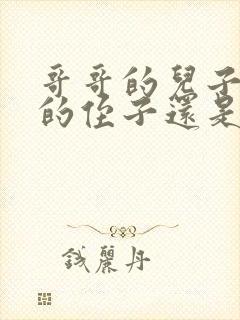 哥哥的兒子
的侄子還是
錢麗丹